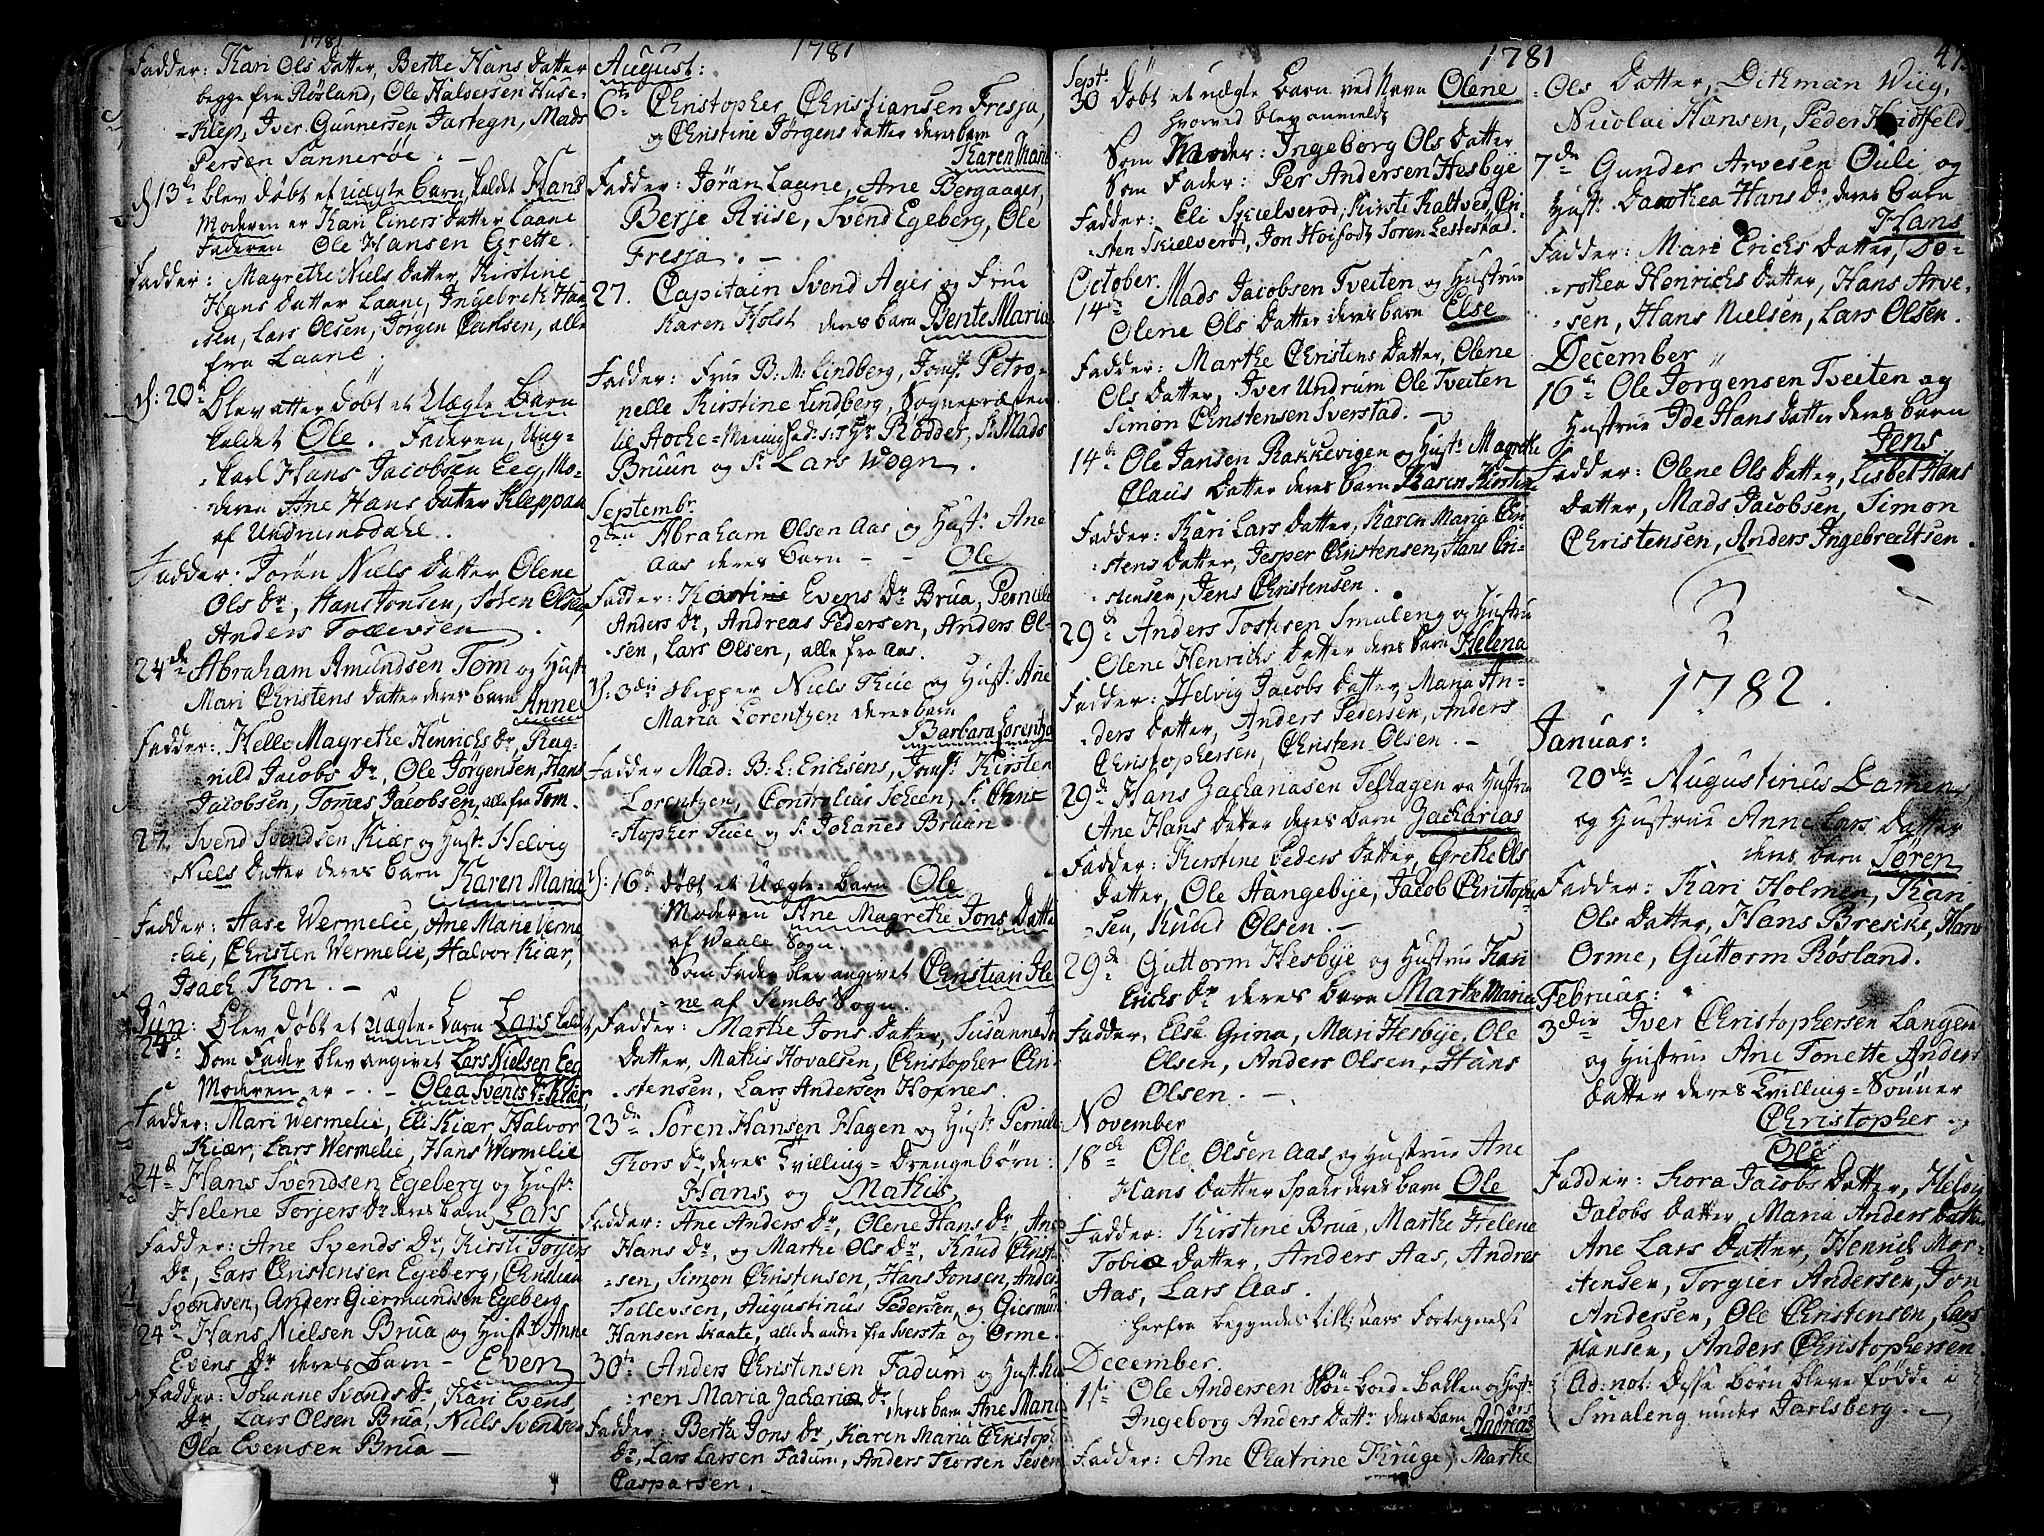 1781
Fadder: Kari Ols Datter, Berthe Hans Datter
begge fra Røsland, Ole Halversen Huse-
-Klep, Iver Gunnersen Jartegn, Mads
Persen Sannerøe. -
d 13de blev døbt et uægte barn, kaldet Hans
Moderen er Kari Einers Datter Laane
Faderen Ole Hansen Egrette.
Fadder: Magrethe Niels Datter, Kirstine
Hans Datter Laane, Ingebret Han-
-sen, Lars Olsen, Jørgen Carlsen, alle
fra Laane.
d: 20de Blev atter døbt et Uægte Barn
kaldet Ole. Faderen, Ung-
-karl Hans Jacobsen Eeg, Mo-
-deren Ane Hans Datter Kleppan
af Undrumsdahl.
Fadder: Jorån Niels Datter Olene
Ols Dr, Hans Jonsen, Søren Olsen
Anders Tollevsen
24de Abraham Amundsen Tom og Hust:
Mari Christens Datter deres barn
Anne
Fadder: Helle Magrethe Henrichs Dr, Rag-
-nild Jacobs Dr, Ole Jørgensen, Hans
Jacobsen, Tomas Jacobsen, alle fra Tom.
27. Svend Svendsen Kiær og Hust: Helvig
Niels Datter deres barn Karen Maria
Fadder: Aase Wermelie, Ane Marie Werme-
-lie, Christen Wermelie, Halvor Kiær,
Isach Thon. -
Jun: Blev døbt et uægte Barn Lars kaldt,
24de Som Fader blev angivet Lars Nielsen Eeg
Moderen er - - Olea Svends Dr Kiær,
Fadder: Mari Wermelie, Eli Kiær, Halvor
Kiær, Lars Wermelie, Hans Wermelie
24d Hans Svendsen Egeberg og Hust:
Helene Torjers Dr deres barn Lars
Fadder: Ane Svends Dr, Kirsti Torjers
Dr, Lars Christensen Egeberg, Christian
Svendsen, Anders Giermundsen Egeberg
24d Hans Nielsen Brua og Hustr: Anne
Evens Dr deres Barn - Even
Fadder: Johanne Svends Dr, Kari Evens
Dr, Lars Olsen Brua, Niels Svendsen
Ola Evensen Brua -
1781
August:
6te Christopher Christiansen Fresja,
og Christine Jørgens Datter deres barn
Karen Maria
Fadder: Jørån Laane, Ane Bergaager,
Berje Riise, Svend Egeberg, Ole
Fresja. -
27. Capitain Svend Ager og Frue
Karen Holst deres barn Bente Maria
Fadder: Frue B. M. Lindberg, Jomf: Petro-
nelle Kirstine Lindberg, Sognepræsten
Hr Rødder, Sr Mads
Bruun og Sr Lars Wogn.
Septembr
2den Abraham Olsen Aas og Hust: Ane
Aas deres barn - - Ole
Fadder: Evens Dr Brua, Pernille
Anders Dr, Andreas Pedersen, Anders Ol-
-sen, Lars Olsen, alle fra Aas.
D: 3die Skipper Niels Thue og Hust: Ane
Maria Lorentzen deres barn
Barbara Lorentza
Fadder Mad: B: L: Ericksens, Jomf: Kirsten
Lorentzen, Scheen, Sr Chri-
-stopher Tue og Sr Johannes Bruun
D: 16de døbt et Uægte barn Ole
Moderen Ane Magrethe Jons Datter
af Waale Sogn.
Som Fader blev angivet Christian
-ne af Sembs Sogn.
Fadder: Marthe Jons Datter, Susanna
Datter, Mathis Hovalsen, Christopher Chri-
-stensen, Lars Andersen Hopnes.
23de Søren Hansen Hagen og Hust: Pernille
Thors Dr, deres Tvilling- Drengebørn:
Hans og Mathis
Fadder: Ane Anders Dr, Olene Hans Dr, Ane
Hans Dr, og Marthe Ols Dr, Knud Christ-
-sen, Simon Christensen, Hans Jonsen, Anders
Tollevsen, Augustinus Pedersen, og Giermun
Hansen Skaate, alle de andre fra Sversta og Orme.
30te Anders Christensen Fadum og Hust: Ka-
-ren Maria Zacharia Dr, deres barn Ane Maria
Fadder: Berthe Jons Dr, Karen Maria Christoph
Dr, Lars Larsen Fadum, Anders Thorsen Seven
Caspersen. -
1781
Sept:
30 Døbt et uægte Barn ved Navn Olene
hvorved blev anmeldt
Som Moder: Ingeborg Ols Datter
Som Fader: Per Andersen Hesbye
Fadder: Eli Skielverod, Kirsti Kaltved, Chri-
-sten Skielverød, Jon Hoifodt, Soren Lestestad.
October.
14de Mads Jacobsen Tveiten og Hustrue
Olene Ols Datter deres barn Else
Fadder: Marthe Christens Datter, Olene
Ols Datter, Iver Undrum Ole Tveiten
Simon Christensen Sverstad. -
14de Ole Jansen Rakkevigen og Hust: Magrethe
Claus Datter deres barn Karen Kirstine
Fadder: Kari Lars Datter, Karen Maria Chri-
-stens Datter, Jesper Christensen, Hans Chri-
-stensen, Jens Christensen.
29de Anders Tostesen Smaleng og Hustru
Olene Henrichs Datter deres barn Helena
Fadder: Helvig Jacobs Datter, Maria An-
-ders Datter, Anders Pedersen, Anders
Christophersen, Christen Olsen. -
29de Hans Zachariasen Felhagen og Hustru
Ane Hans Datter deres barn Zacharias
Fadder: Kirstine Peders Datter, Grethe Ols
Datter, Ole Aangebye, Jacob Christoph-
-sen, Knud Olsen. -
29de Guttorm Hesbye og Hustrue Kari
Erichs Dr deres barn Marthe Maria
Fadder, Else Grina, Mari Hesbye, Ole
Olsen, Anders Olsen, Hans
Olsen. -
November
18de Ole Olsen Aas og Hustrue Ane
Hans Datter Spaer deres barn Ole
Fadder: Kirstine Brua, Marthe Helene
Tobia Datter, Anders Aas, Andres
Aas, Lars Aas.
Herfra begyndes Aars Fortegnelse
December.
1ste Ole Andersen og Hust:
Ingeborg Anders Datr: deres barn
Andreas
Fadder: Ane Chatrine Kruge, Marthe
47.
Ols Datter, Dithman Wiig,
Nicolai Hansen, Peder Hadfeld.
7de Gunder Arvesen Ouli og
Hust: Dorothea Hans Dr deres barn
Hans
Fadder: Mari Erichs Datter, Do-
-rothea Henrichs Datter, Hans Arve-
-sen, Hans Nielsen, Lars Olsen.
December
16de Ole Jørgensen Tveiten og
Hustrue Ide Hans Datter deres barn
Jens
Fadder: Olene Ols Datter, Lisbet Hans
Datter, Mads Jacobsen, Simon
Christensen, Anders Ingebrechtsen.
1782.
Januar:
20de Augustinus Damen,
og Hustrue Anne Lars Datter
deres barn Søren
Fadder: Kari Holmen, Kari
Ols Datter, Hans Brekke, Hans
Orme, Guttorm Røsland.
Februar:
3die Iver Christophersen Langend
og Hustrue Ane Tonette Anders
Datter deres Tvilling-Sønner
Christopher og
Ole
Fadder: Kora Jacobs Datter, Helvig
Jacobs Datter, Maria Anders Datter
Ane Lars Datter, Henrich Mor-
-tensen, Torgier Andersen, Jon
Andersen, Ole Christensen, Lars
Hansen, Anders Christophersen
Ad: not: Desse børn bleve fødde i
Smaleng under Jarlsberg. -